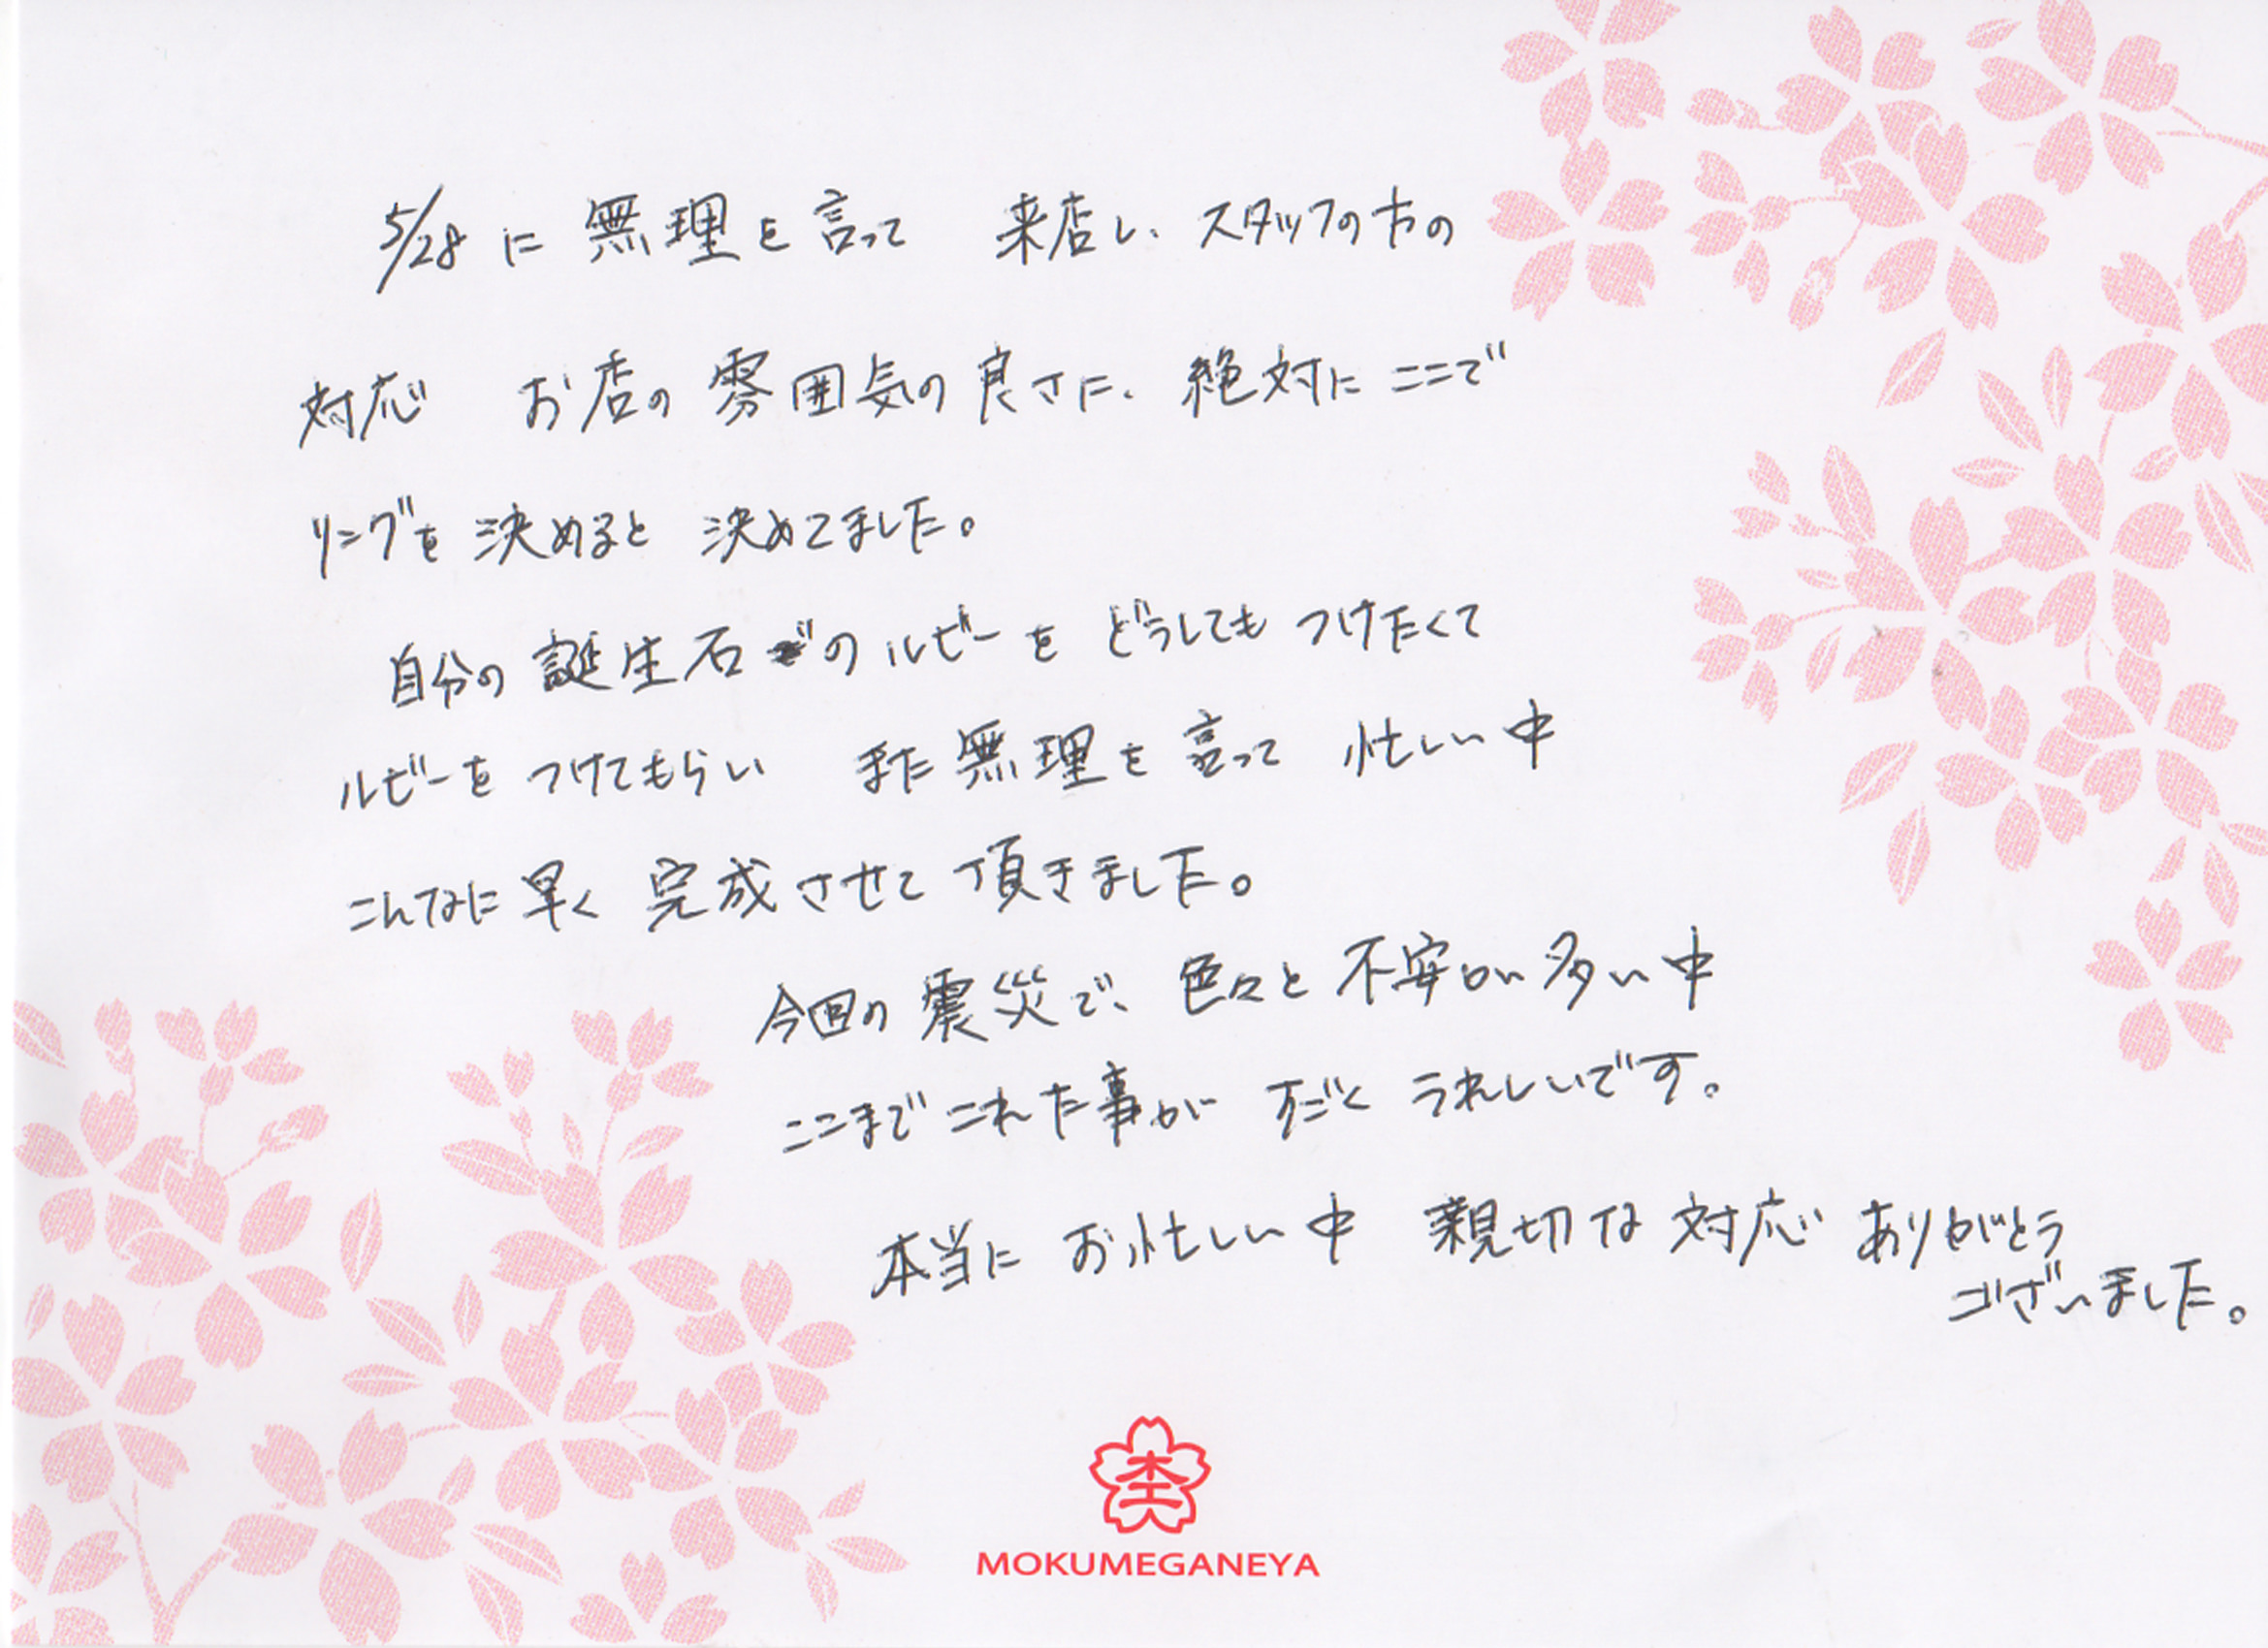 5/28 に 無理を言って 来店し、スタッフの方の
対応 お店の雰囲気の良さに、絶対にここで
リングを決めると 決めてました。
自分の誕生石のルビーを どうしてもつけたくて
ルビーをつけてもらい また無理を言って 忙しい中
こんなに早く 完成させて頂きました。
今回の震災で、色々と不安がい多い中
ここまでこれた事が すごく うれしいです。
本当に お忙しい中 親切な対応 ありがとう
ございました。
杢
MOKUMEGANEYA